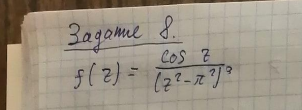 Задание 8.
f(z) = cos z / (z² - π²)³